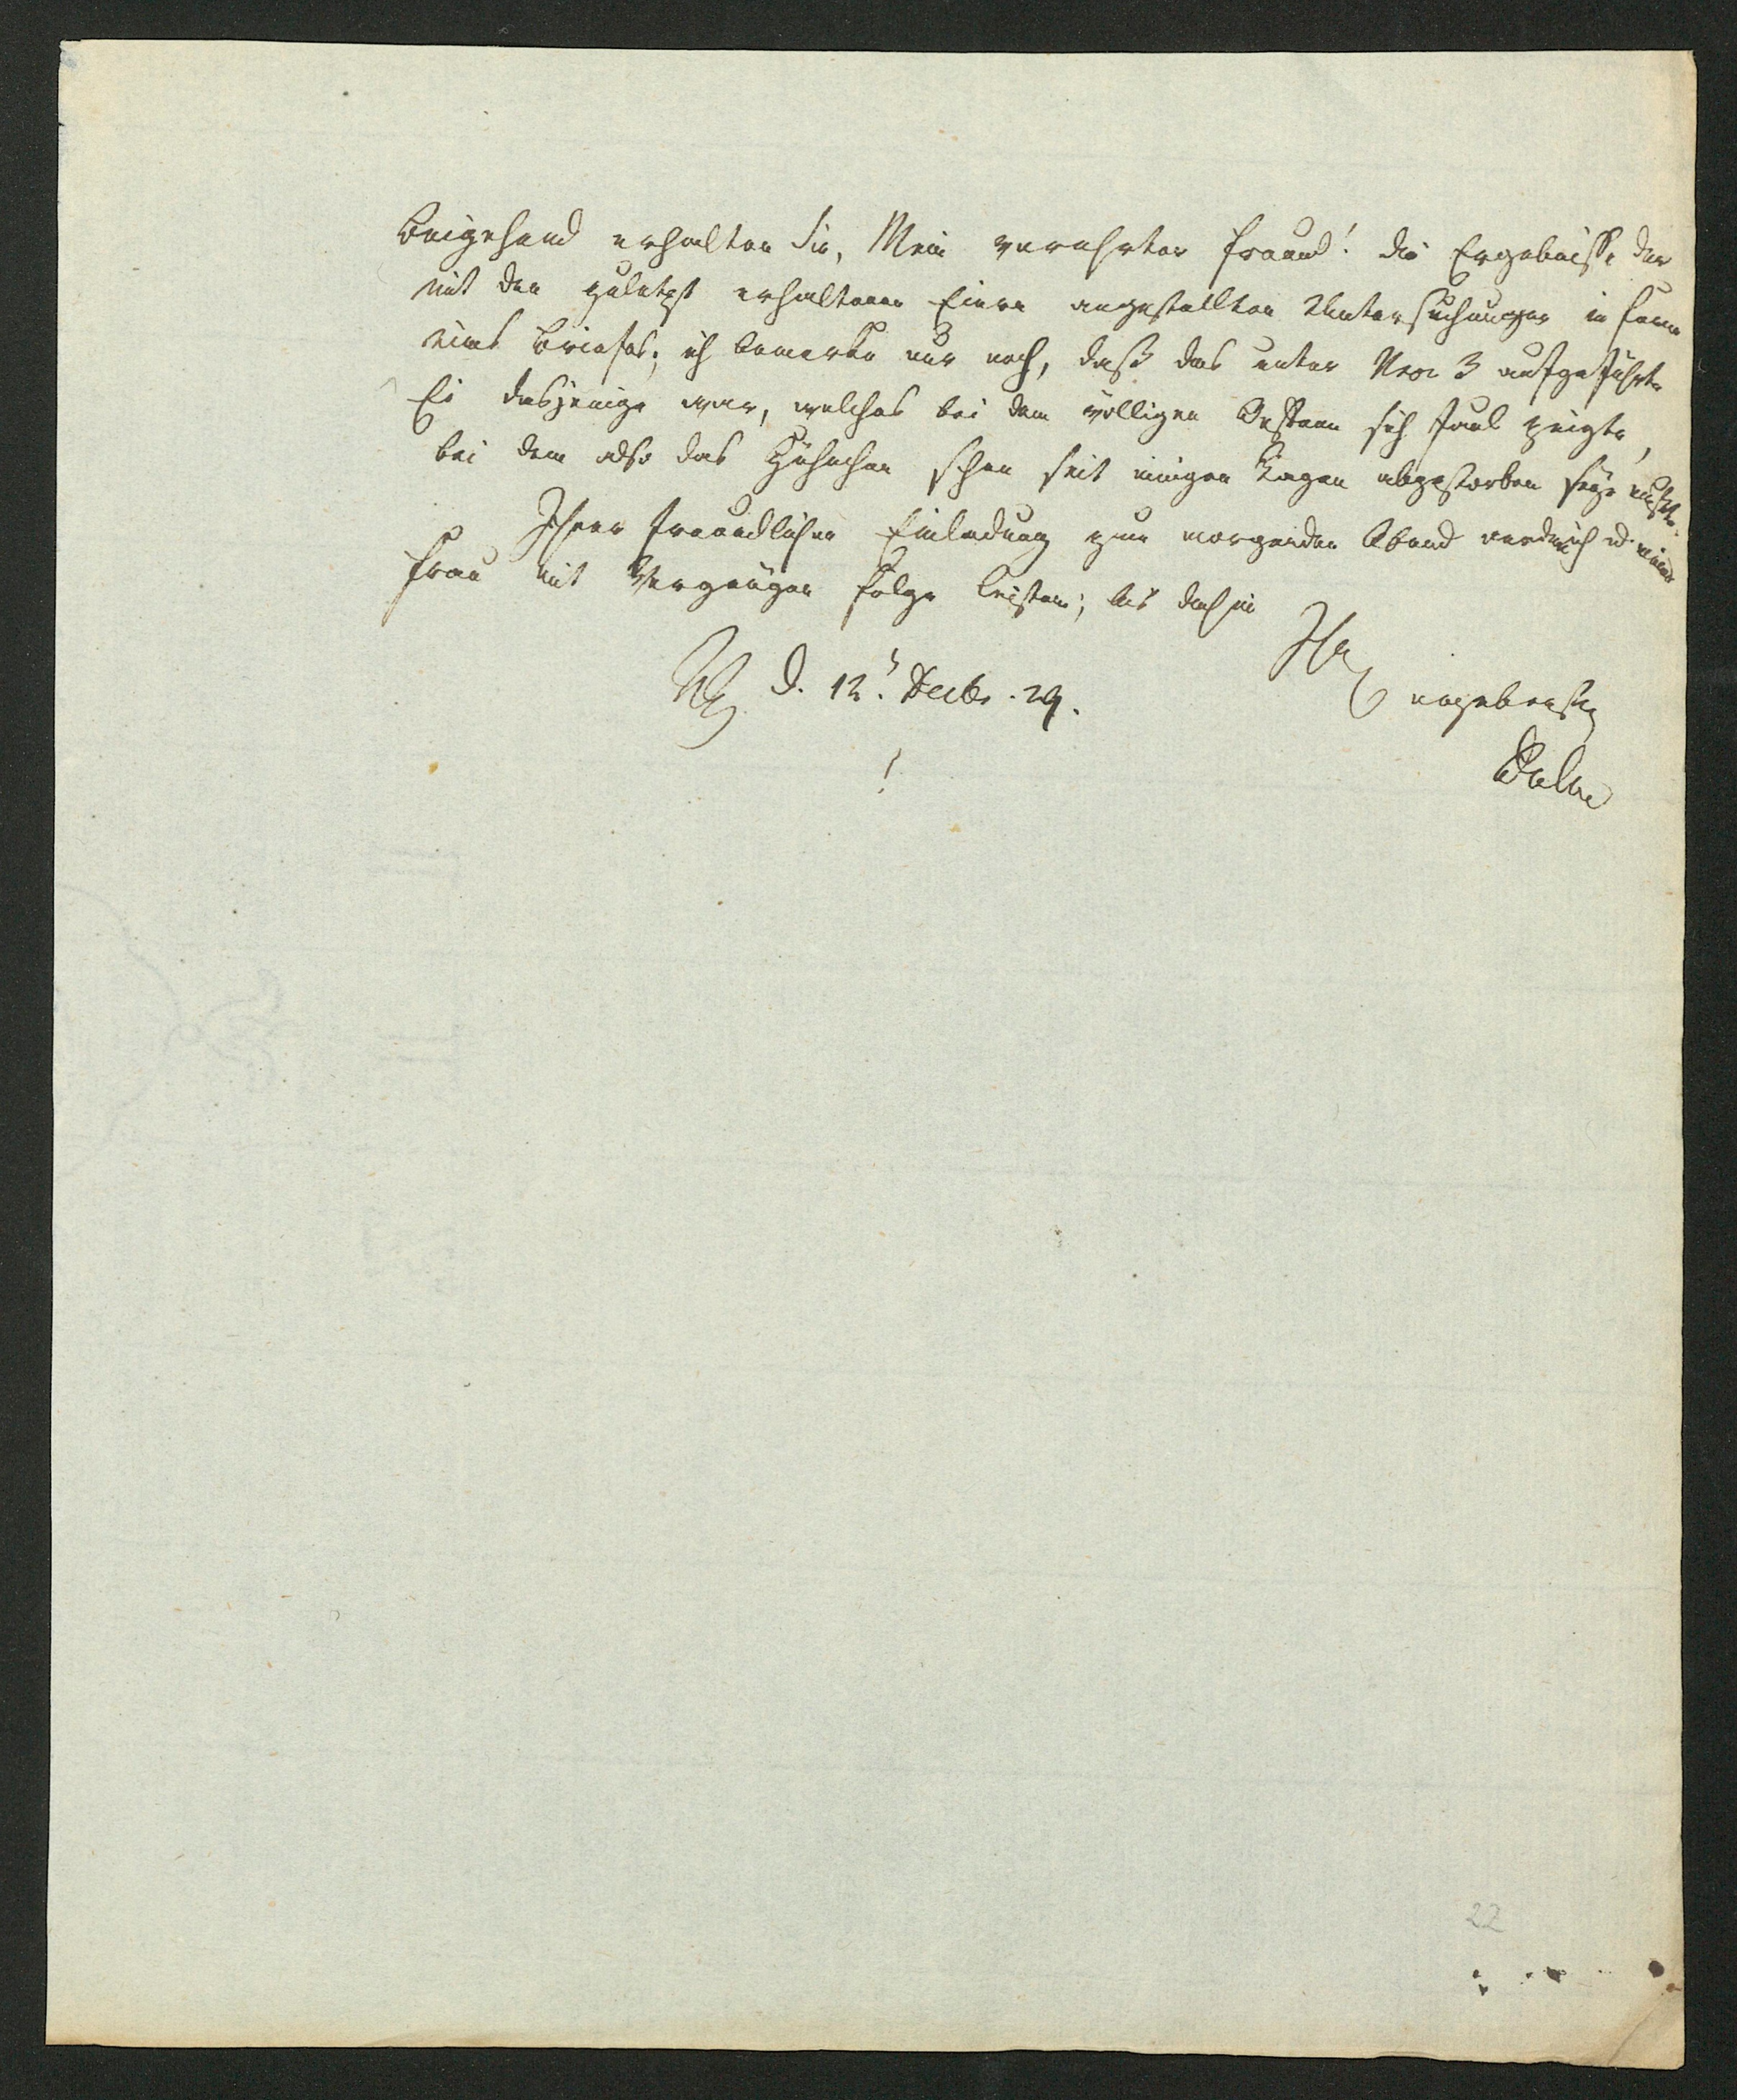 Beigehend erhalten Sie, Mein verehrter Freund! die Ergebnisse der
mit den zuletzt erhaltenen Eiern angestellten Untersuchungen in Form
eines Briefes; ich bemerke nur noch, daß das unter Nro 3 aufgeführte
Ei dasjenige war, welches bei dem völligen Oeffnen sich faul zeigte,
bei dem also das Hühnchen schon seit einigen Tagen abgestorben seyn mußte.
Ihrer freundlichen Einladung zum morgenden Abend werde ich u. meine
Frau mit Vergnügen Folge leisten; bis dahin
Ihr
d. 12. Decbr. 29.
ergebenster
22